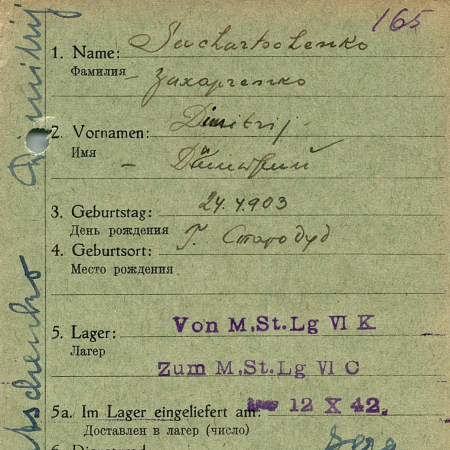 165
1. Name: Sachartschenko
Фамилия – Захарченко
2. Vornamen: Dimitrij
Имя – Дмитрий
3. Geburtstag: 24.4.903
День рождения
4. Geburtsort: Г. Стародуб
Место рождения
5. Lager: Von M.St.Lg VI K
Лагер
Zum M.St.Lg VI C
5a. Im Lager eingeliefert am: 12 X 42.
Доставлен в лагер (число)
Dimitrij